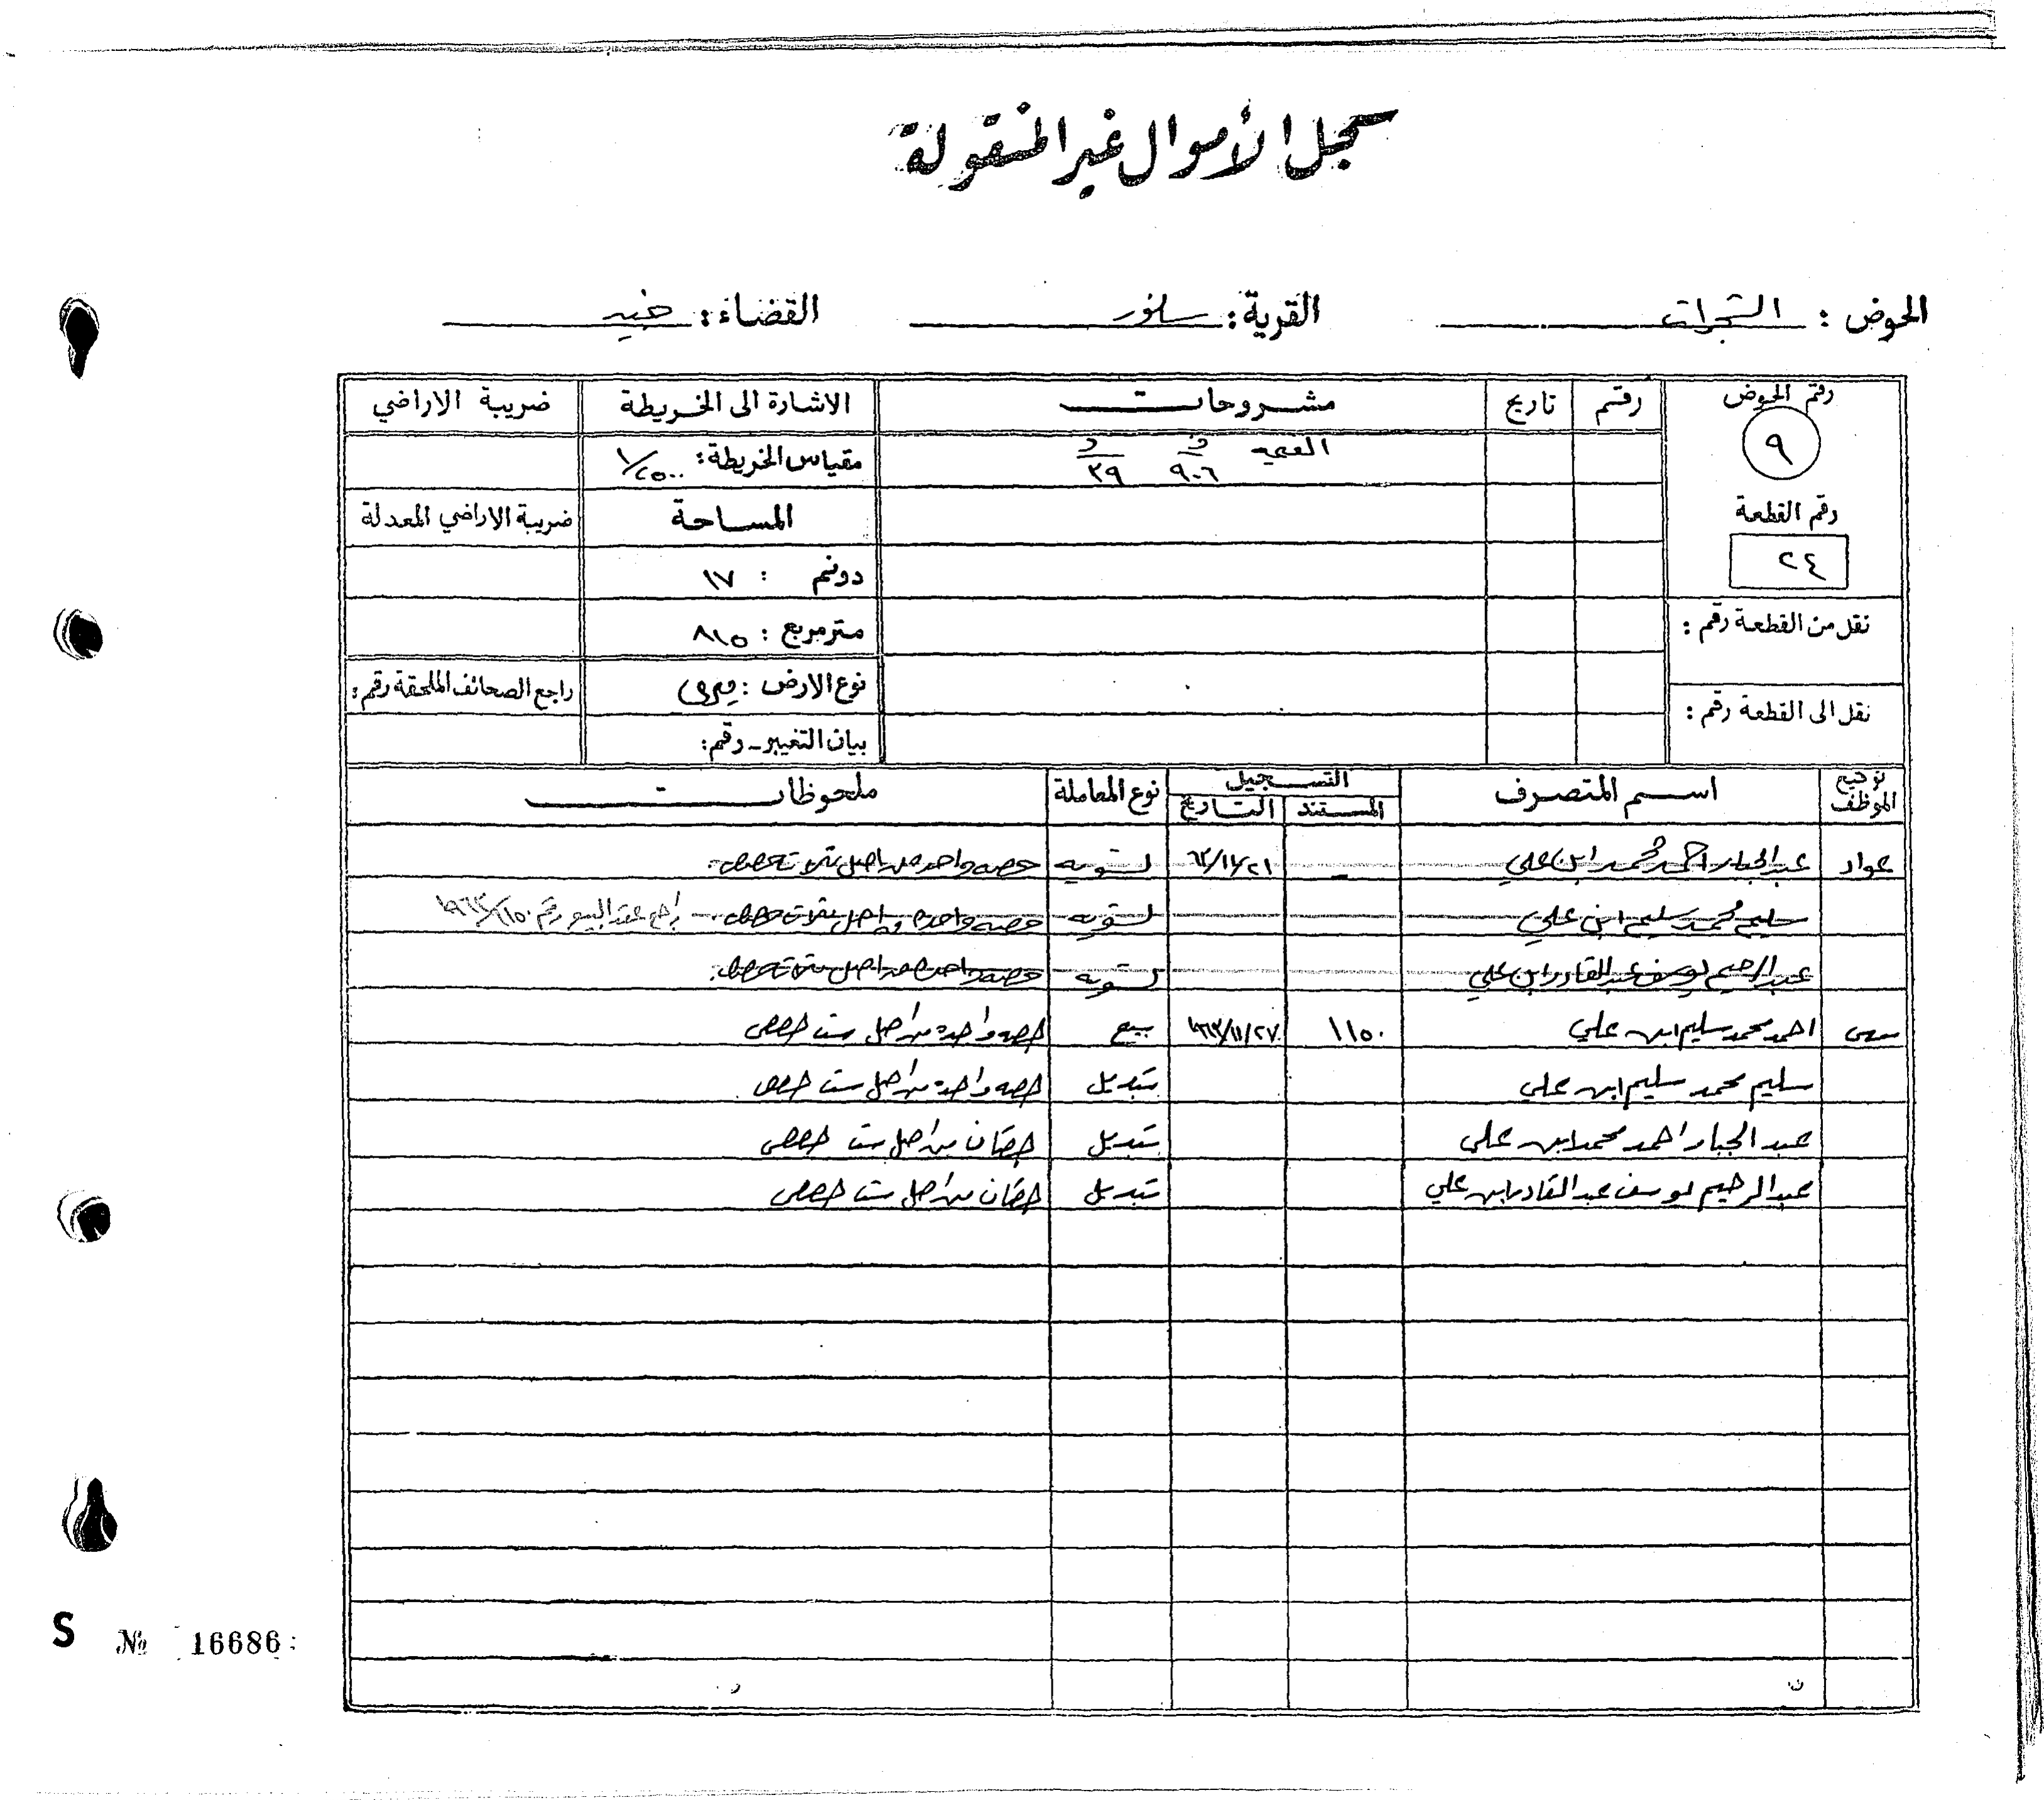 سجل الأموال غير المنقولة
الحوض : الشجرات القرية : سانور القضاء : جنين
رقم الحوض رقم تاريخ مشروحات الاشارة الى الخريطة ضريبة الاراضي
٩ القيمة ف د مقياس الخريطة : ١/٢٥٠٠
٩٠٦ ٣٩
رقم القطعة المساحة ضريبة الاراضي المعدلة
٢٤ دونم : ١٧
نقل من القطعة رقم : متر مربع : ٨١٥
نوع الارض : ميري راجع الصحائف الملحقة رقم :
نقل الى القطعة رقم : بيان التغيير - رقم :
توقيع الموظف اسم المتصرف التسجيل نوع المعاملة ملحوظات
المستند التاريخ
عواد عبد الجبار احمد محمد ابن علي - ٦٢/١٢/٢١ تسويه حصه واحده من اصل ثلاث حصص
سليم محمد سليم ابن علي تسويه حصه واحده من اصل ثلاث حصص راجع عقد البيع رقم ١١٥٠/٩٦٣
عبد الرحيم يوسف عبد القادر ابن علي تسويه حصه واحده من اصل ثلاث حصص
احمد محمد سليم ابن علي ١١٥٠ ٩٦٣/١١/٢٧ بيع حصه واحده من اصل ست حصص
سليم محمد سليم ابن علي تبديل حصه واحده من اصل ست حصص
عبد الجبار احمد محمد ابن علي تبديل حصتان من اصل ست حصص
عبد الرحيم يوسف عبد القادر ابن علي تبديل حصتان من اصل ست حصص
S № 16686